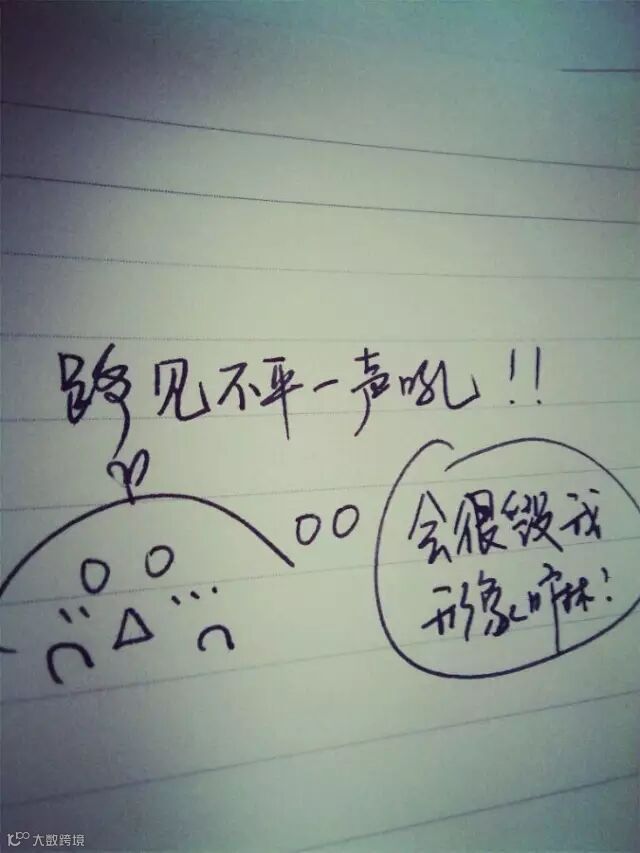 路见不平一声吼!!
会很毁我
形象嘛?
大数跨境